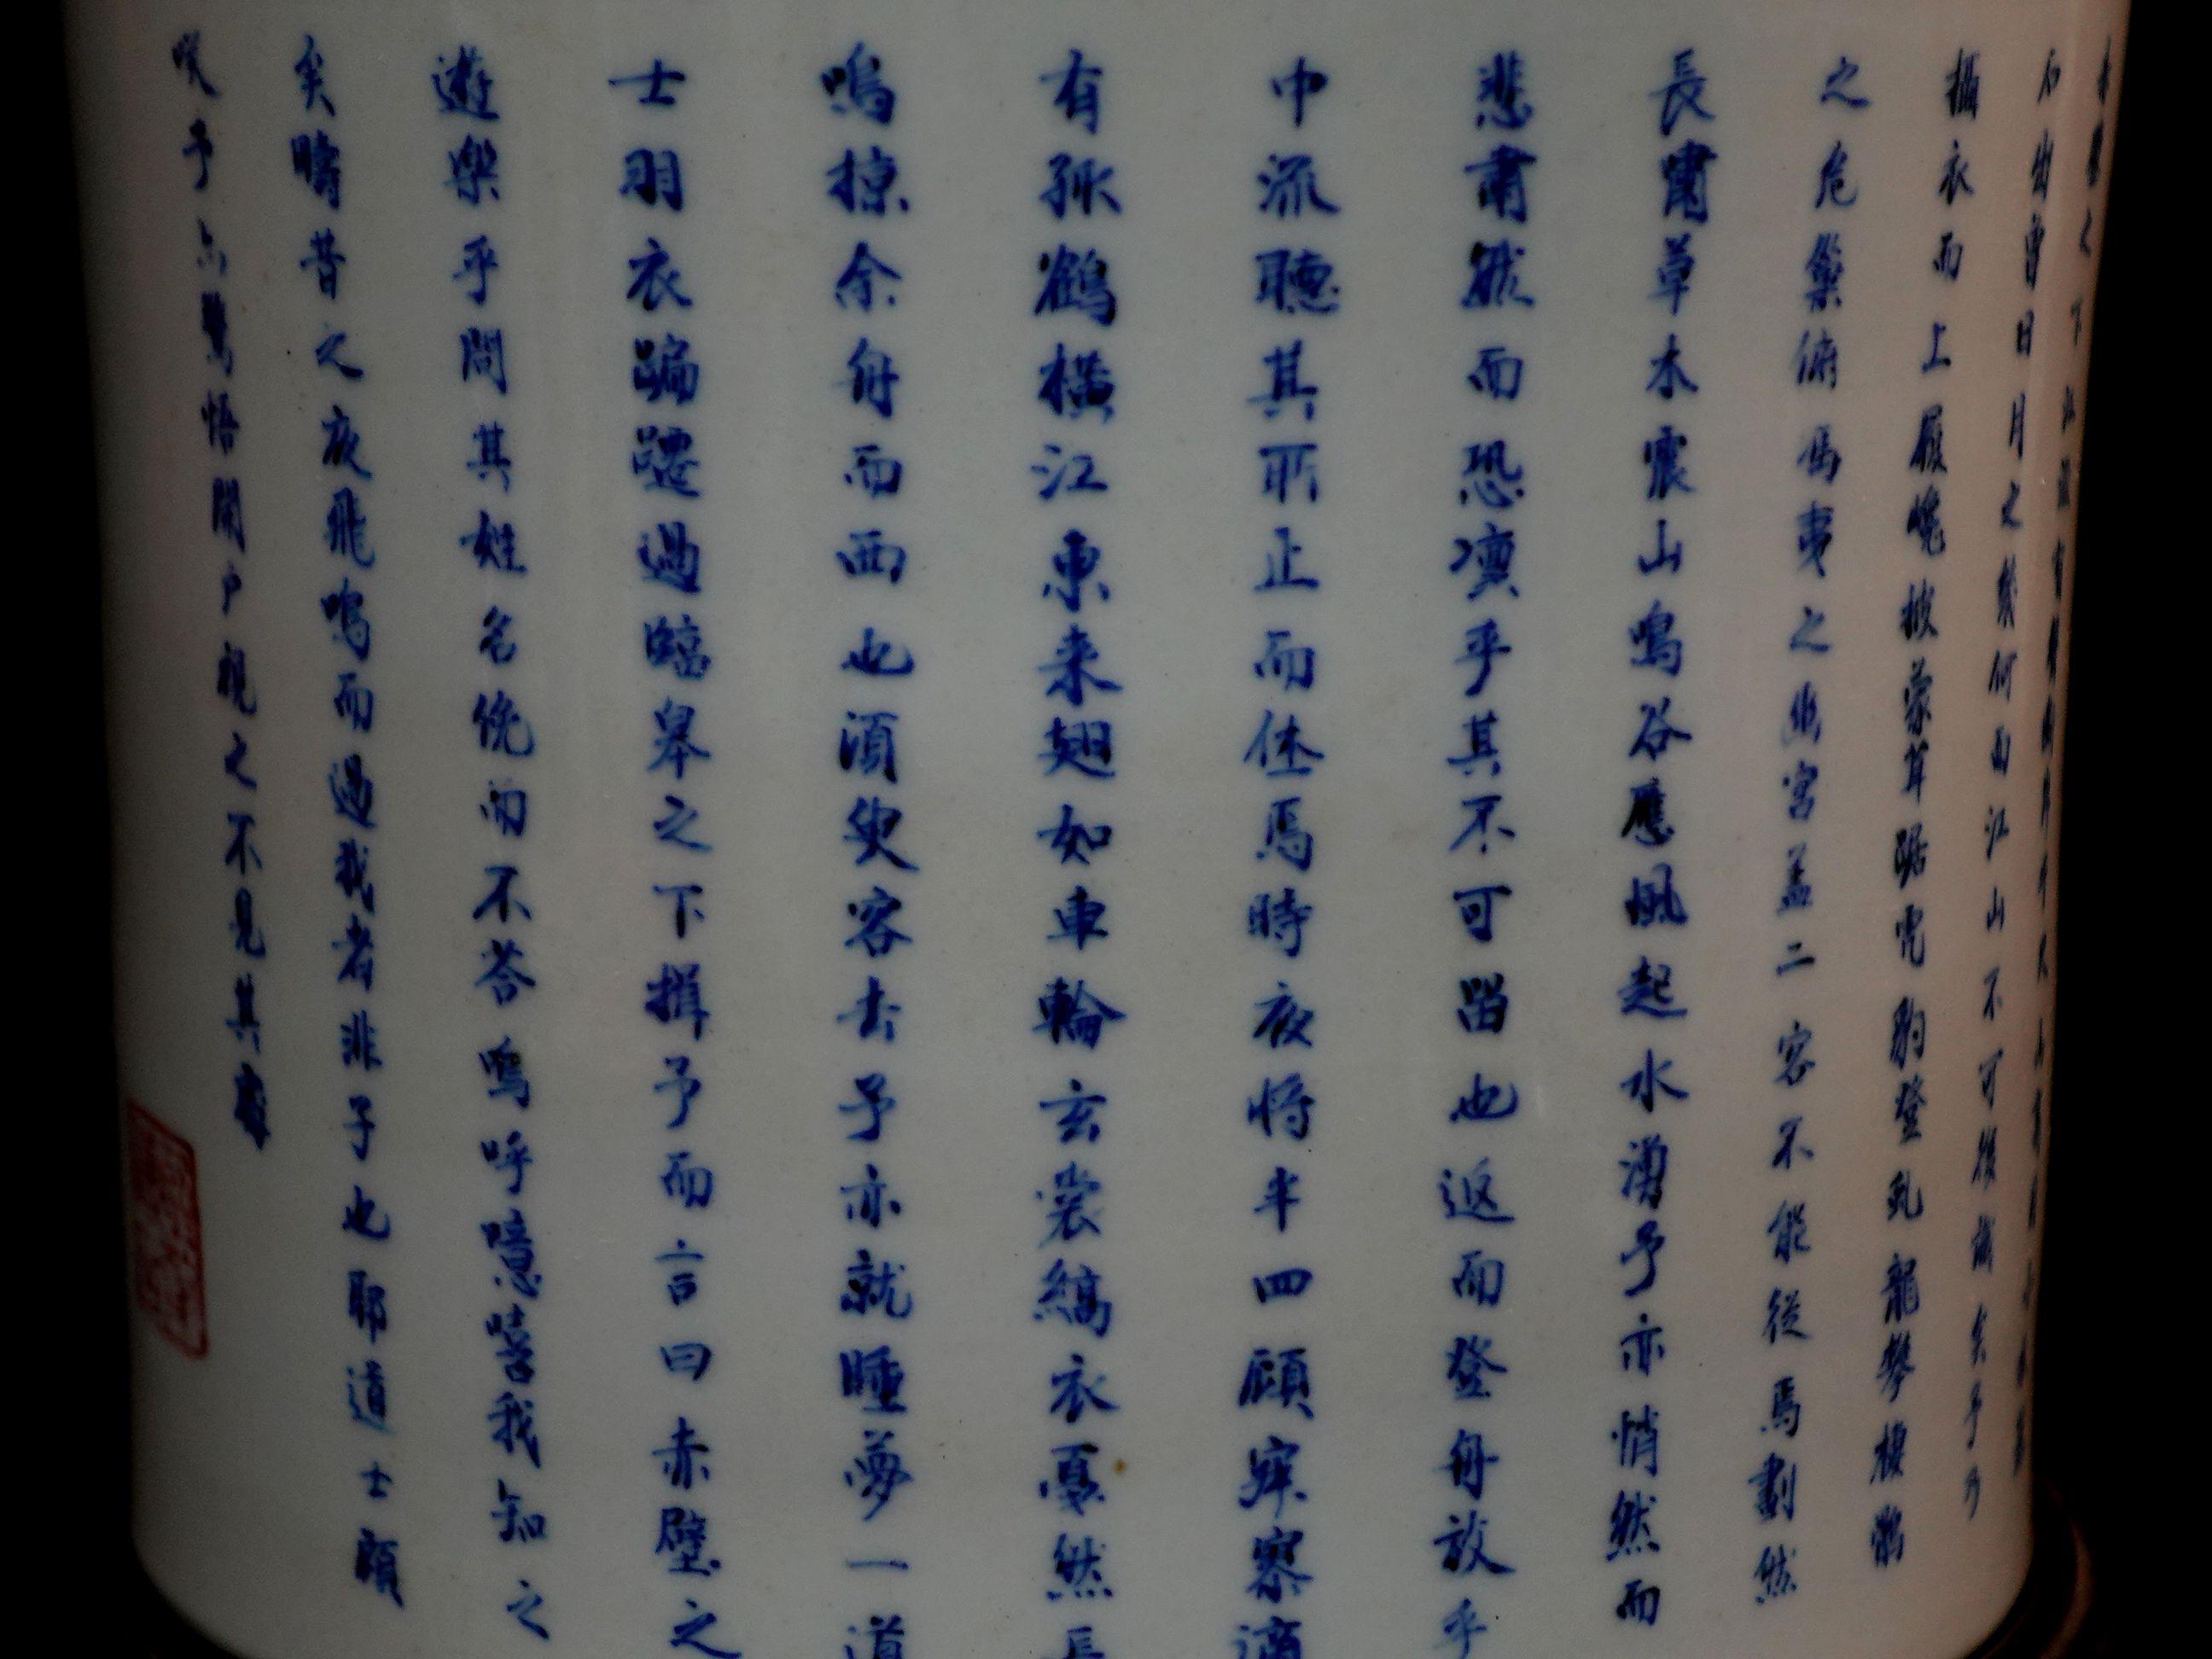 之下江流有聲斷岸千尺山高月小水落
石出曾日月之幾何而江山不可復識矣予乃
攝衣而上履巉披蒙茸踞虎豹登虬龍攀棲鶻
之危巢俯馮夷之幽宮盖二客不能從焉劃然
長嘯草木震山鳴谷應風起水湧予亦悄然而
悲肅然而恐凛乎其不可留也返而登舟放乎
中流聽其所止而休焉時夜將半四顧寂寥適
有孤鶴橫江東来翅如車輪玄裳縞衣戛然長
鳴掠余舟而西也須臾客去予亦就睡夢一道
士羽衣蹁躚過臨皋之下揖予而言曰赤壁之
遊樂乎問其姓名俛而不答嗚呼噫嘻我知之
矣疇昔之夜飛鳴而過我者非子也耶道士顧
咲予亦驚悟開戶視之不見其處